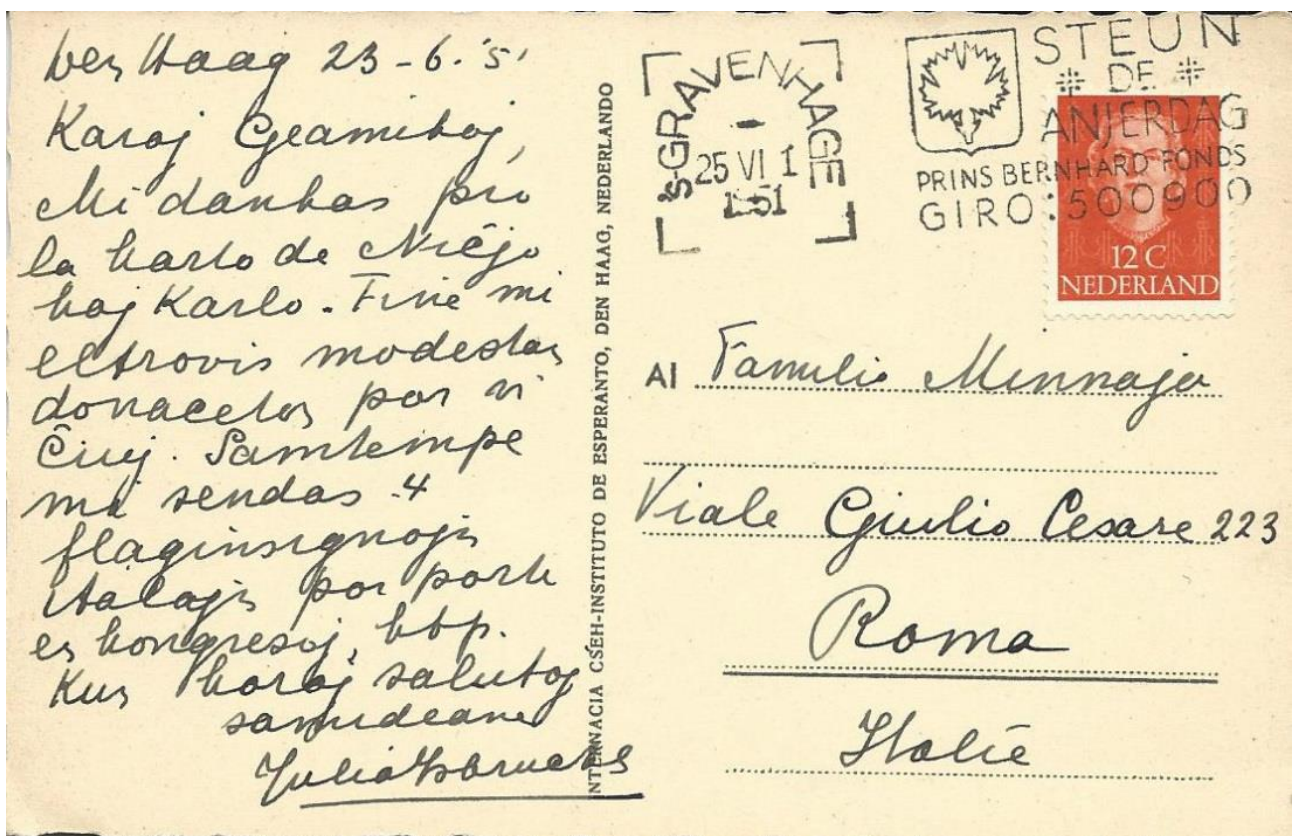 Den Haag 23-6.'51
Karaj Geamikoj,
Mi dankas pro
la karto de Niĉjo
kaj Karlo. Fine mi
eltrovis modestajn
donacetojn por vi
ĉiuj. Samtempe
mi sendas 4
flaginsignojn
italajn por porti
en kongresoj, ktp.
Kun koraj salutoj
samideane
Julia Isbrucker
INTERNACIA CSEH-INSTITUTO DE ESPERANTO, DEN HAAG, NEDERLANDO
's-GRAVENHAGE
25 VI 1
1951
STEUN
DE
ANJERDAG
PRINS BERNHARD FONDS
GIRO: 500900
12 C
NEDERLAND
Al Familio Minnaja
Viale Giulio Cesare 223
Roma
Italië